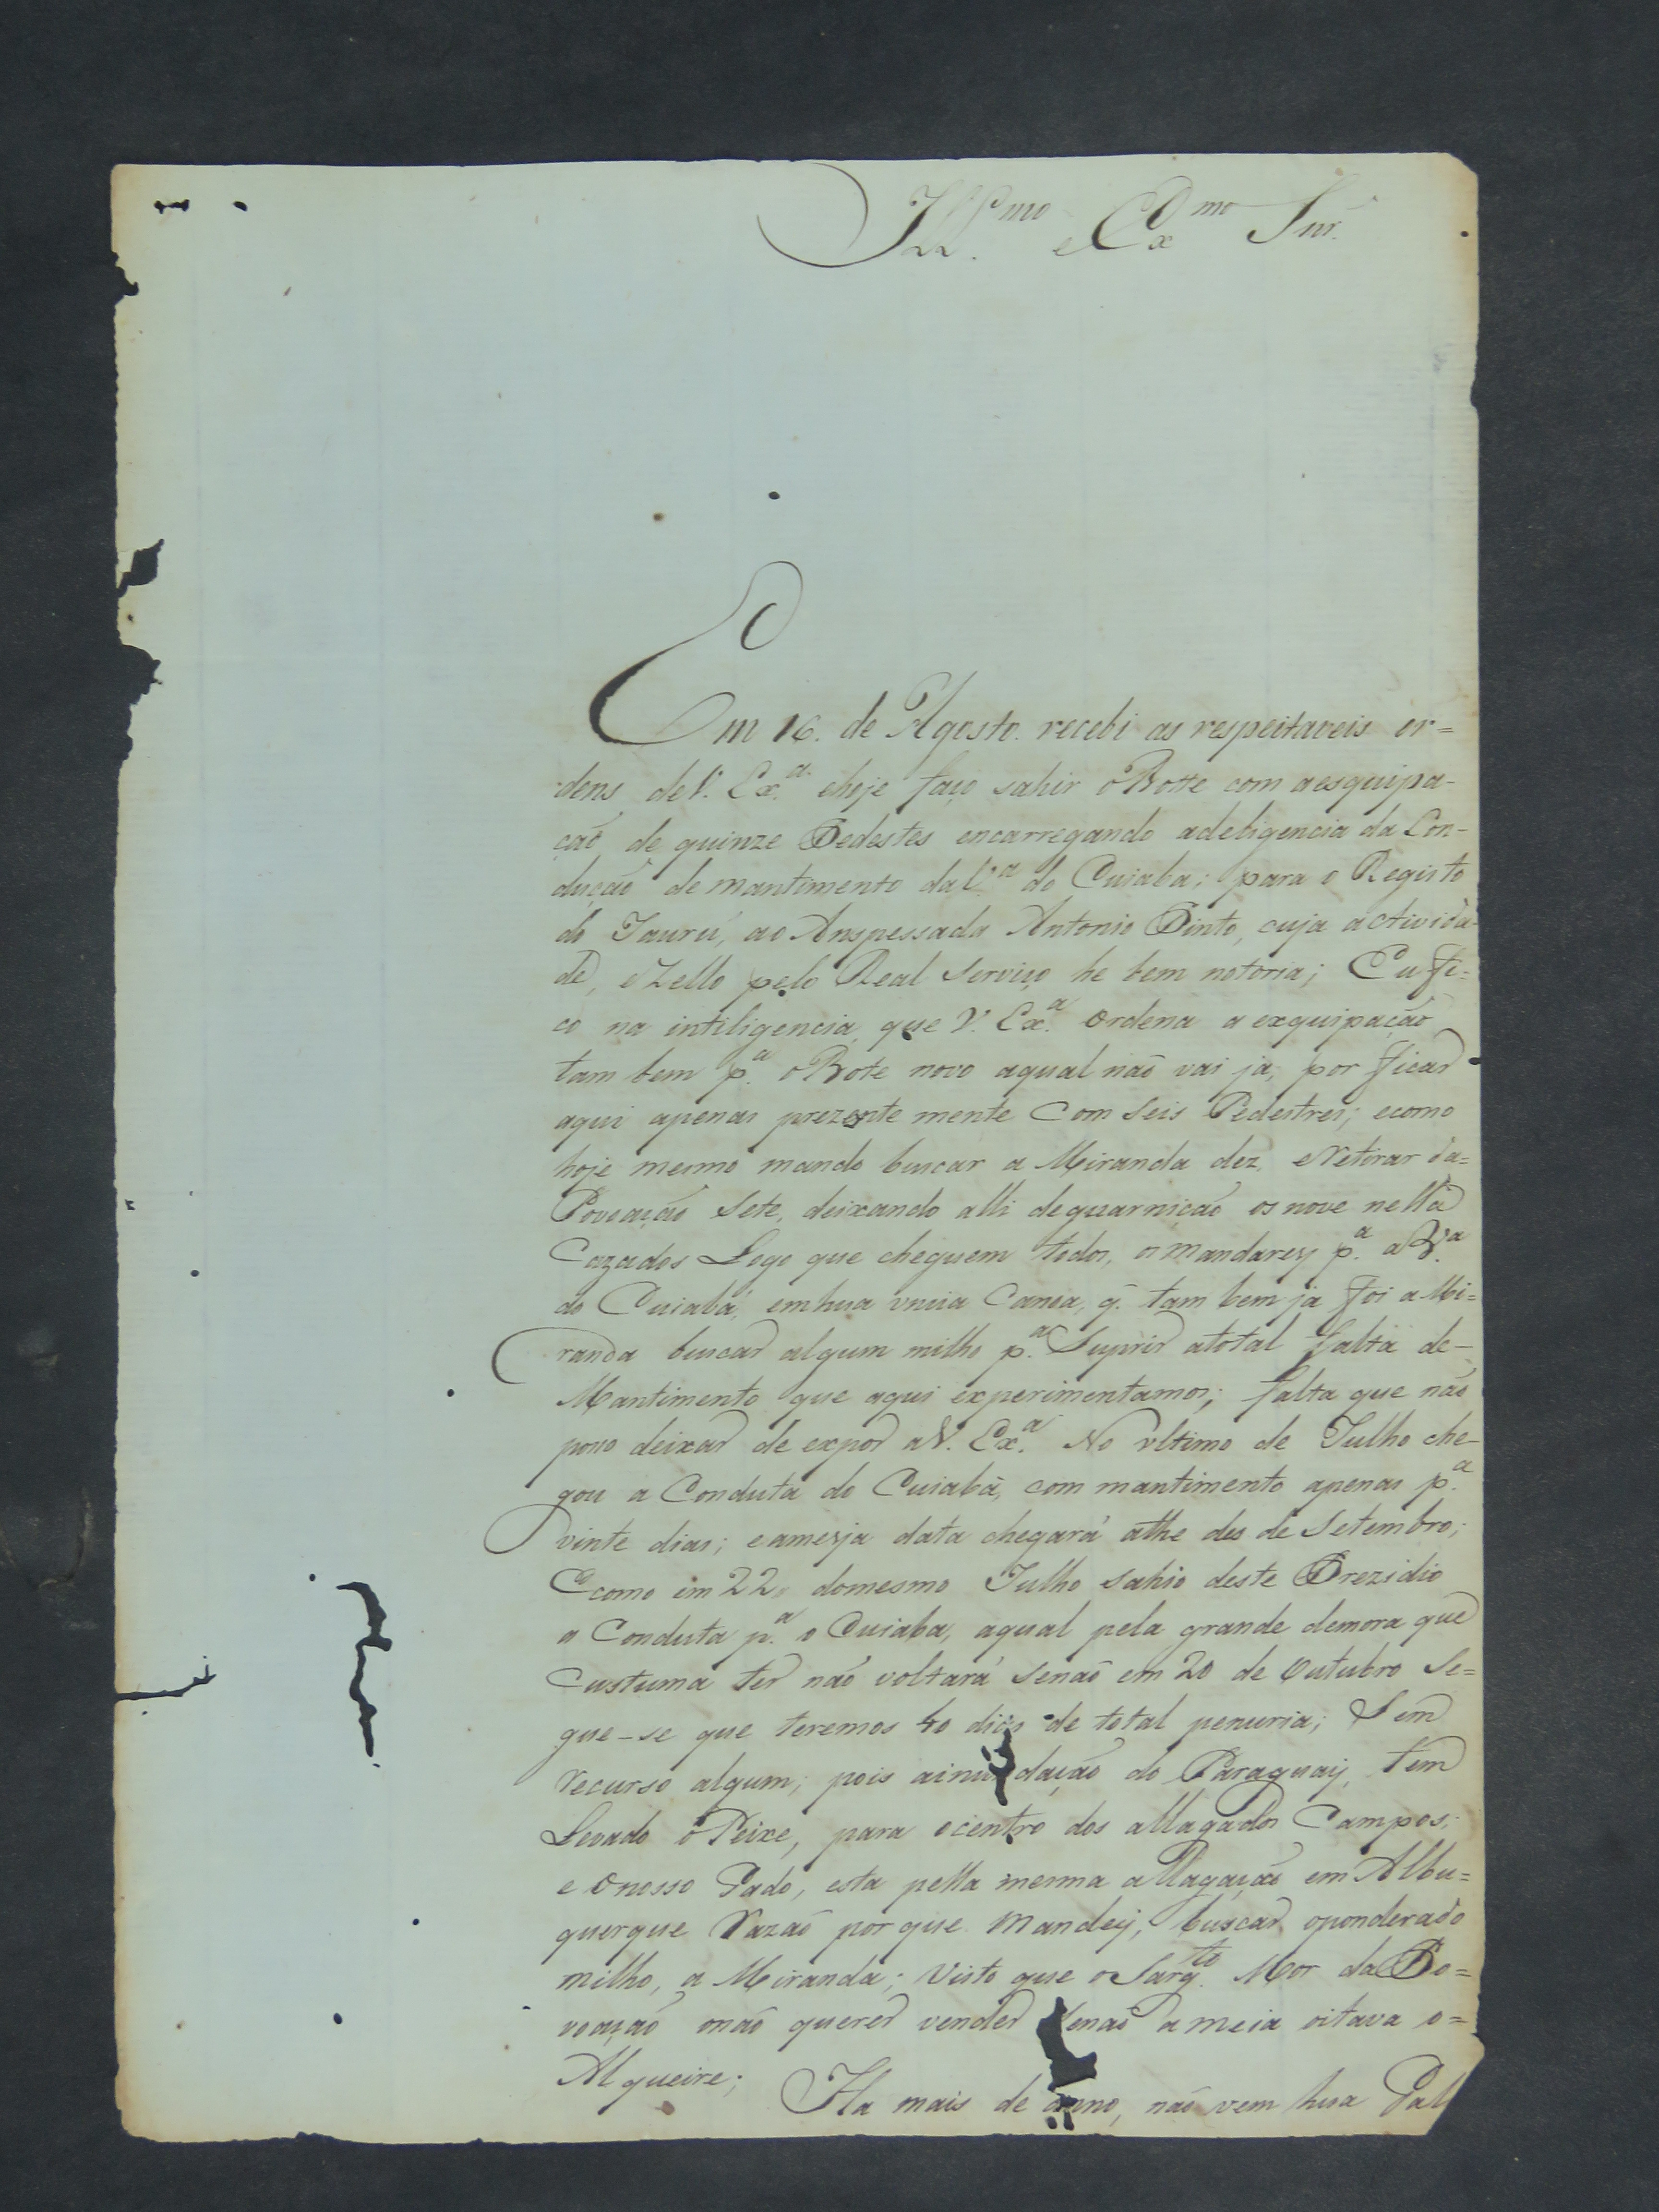 Ill.mo e Ex.mo Snr.
Em 16. de Agosto. recebi as respeitaveis or=
dens de V. Ex.a ehoje faço sahir o Botte com aesquipa-
ção de quinze Pedestes encarregando adeligencia da Con-
dução de mantimento da V.a do Cuiaba; para o Registo
do Jaurú, ao Anspessada Antonio Pinto, cuja activida-
de, eZello pelo Real Serviço he bem notoria; Eu fi-
co na intiligencia, que V. Ex.a Ordena a exquipação
tam bem p.a o Bote novo aqual não vai ja, por ficar
aqui apenas prezente mente Com Seis Pedestres; ecomo
hoje mesmo mando buscar a Miranda dez, eRetirar da=
Povoação Sete, deixando alli deguarnição os nove nella
Cazados Logo que cheguem todos, os mandarey p.a a V.a
do Cuiabá, emhua vnica Canoa, q. tam bem ja foi a Mi=
randa buscar algum milho p.a Suprir atotal falta de-
Mantimento que aqui experimentamos; falta que não
poso deixar de expor a V. Ex.a No vltimo de Julho che-
gou a Conduta do Cuiabá, com mantimento apenas p.a
vinte dias; eamesja data chegará athe des de Setembro;
Ecomo em 22, domesmo Julho sahio deste Prezidio
a Conduta p.a o Cuiaba, aqual pela grande demora que
Custuma ter não voltará Senão em 20 de Outubro Se=
gue-se que teremos 40 dias de total penuria; Sem
recurso algum; pois ainundação do Paraguay, tem
Levado o Peixe, para ocentro dos allagados Campos;
e Onosso Gado, esta pella mesma allagação em Albu=
querque Razão por que Mandey, buscar oponderado
milho, a Miranda; Visto que o Sarg.to Mor da Po=
voação onão querer vender Senão a meia oitava o=
Alqueire;
Ha mais de anno, não vem hua Gal